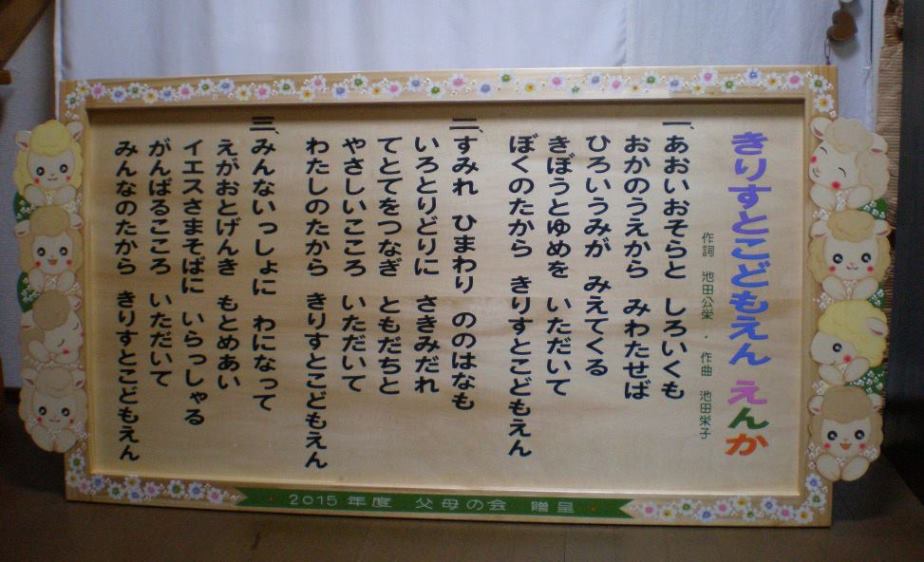 きりすとこどもえん えんか
作詞 池田公栄 ・ 作曲 池田栄子
一、あおいおそらと しろいくも
おかのうえから みわたせば
ひろいうみが みえてくる
きぼうとゆめを いただいて
ぼくのたから きりすとこどもえん
二、すみれ ひまわり ののはなも
いろとりどりに さきみだれ
てとてをつなぎ ともだちと
やさしいこころ いただいて
わたしのたから きりすとこどもえん
三、みんないっしょに わになって
えがおとげんき もとめあい
イエスさまそばに いらっしゃる
がんばるこころ いただいて
みんなのたから きりすとこどもえん
2015年度 父母の会 贈呈